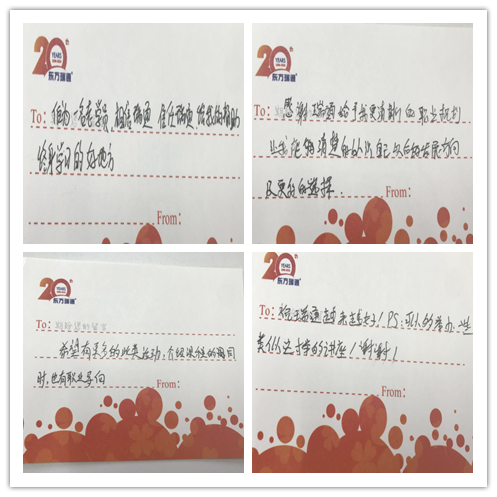 20th
YEARS
东方瑞通
To: 作为一名老学员,相信瑞通 信任瑞通,给我的帮助
终身学习的好地方
From:
20th
YEARS
东方瑞通
To: 感谢瑞通给予我更清晰的职业规划
让我能够清楚的认识自己以后的发展方向
及更多的选择.
From:
20th
YEARS
东方瑞通
To:
希望有更多的此类活动,介绍技能的同
时,也有职业导向
From:
20th
YEARS
东方瑞通
To: 祝瑞通越来越好!PS:可以的举办一些
类似这样的讲座!谢谢!
From: